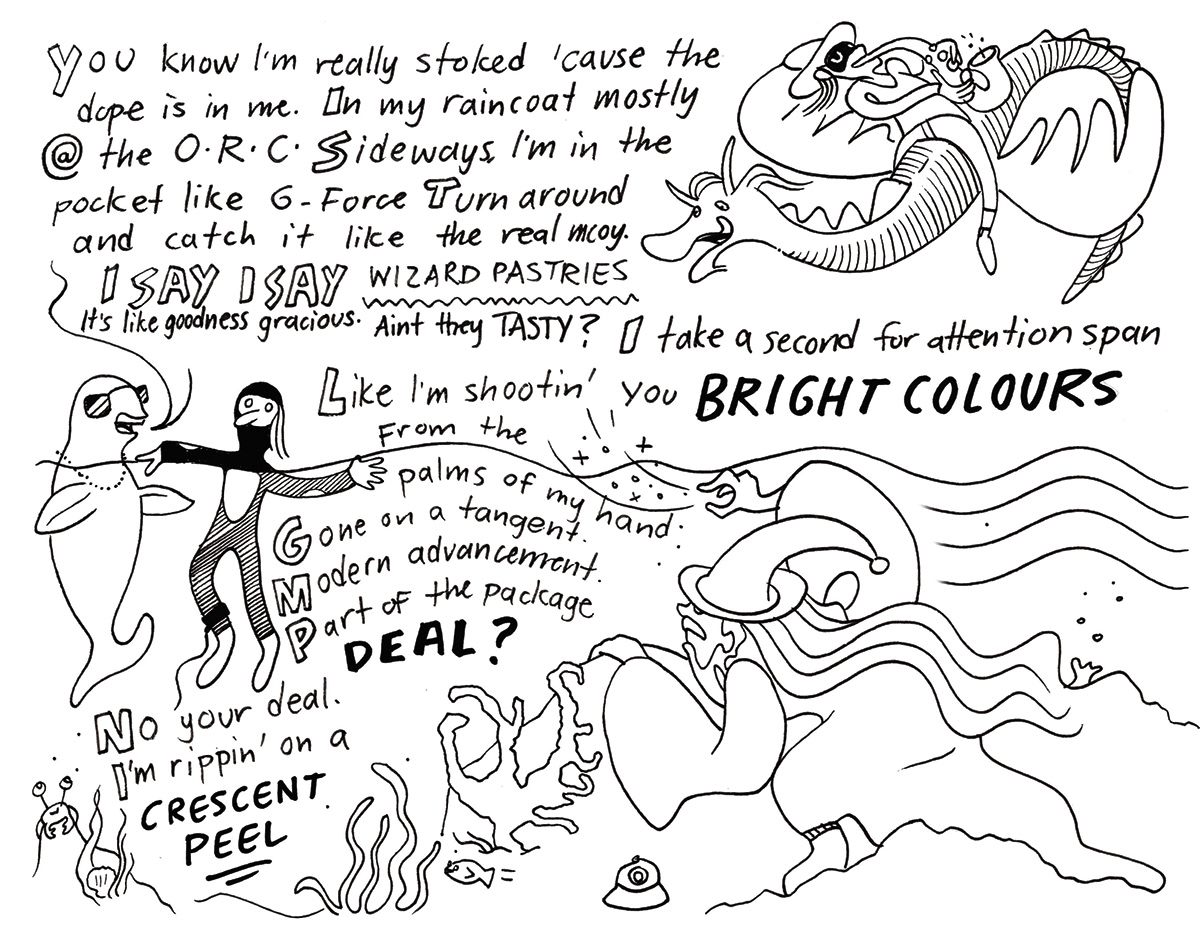 You know I'm really stoked 'cause the
dope is in me. In my raincoat mostly
@ the O.R.C. Sideways, I'm in the
pocket like G-Force Turn around
and catch it like the real mcoy.
I SAY I SAY WIZARD PASTRIES
It's like goodness gracious. Aint they TASTY? I take a second for attention span
Like I'm shootin' you BRIGHT COLOURS
From the
palms of my hand.
Gone on a tangent.
Modern advancement.
Part of the package
DEAL?
No your deal.
I'm rippin' on a
CRESCENT
PEEL